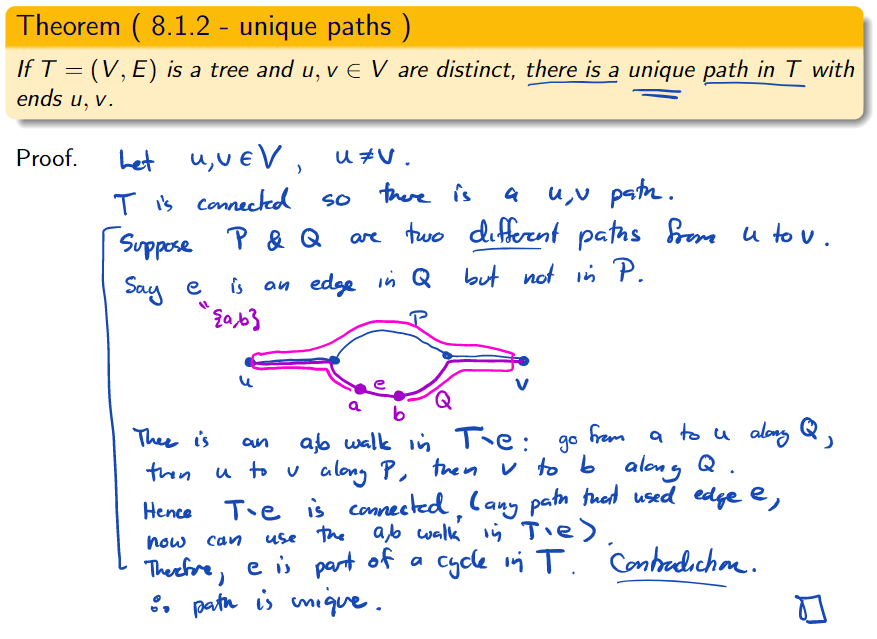 Theorem ( 8.1.2 - unique paths )
If T = (V, E) is a tree and u, v ∈ V are distinct, there is a unique path in T with
ends u, v.
Proof. Let u,v ∈ V, u ≠ v.
T is connected so there is a u,v path.
Suppose P & Q are two different paths from u to v.
Say e is an edge in Q but not in P.
"{a,b}
P
u
e
v
a
b
Q
There is an a,b walk in T\e: go from a to u along Q,
then u to v along P, then v to b along Q.
Hence T\e is connected, (any path that used edge e,
now can use the a,b walk in T\e).
Therefore, e is part of a cycle in T. Contradiction.
∴ path is unique. □